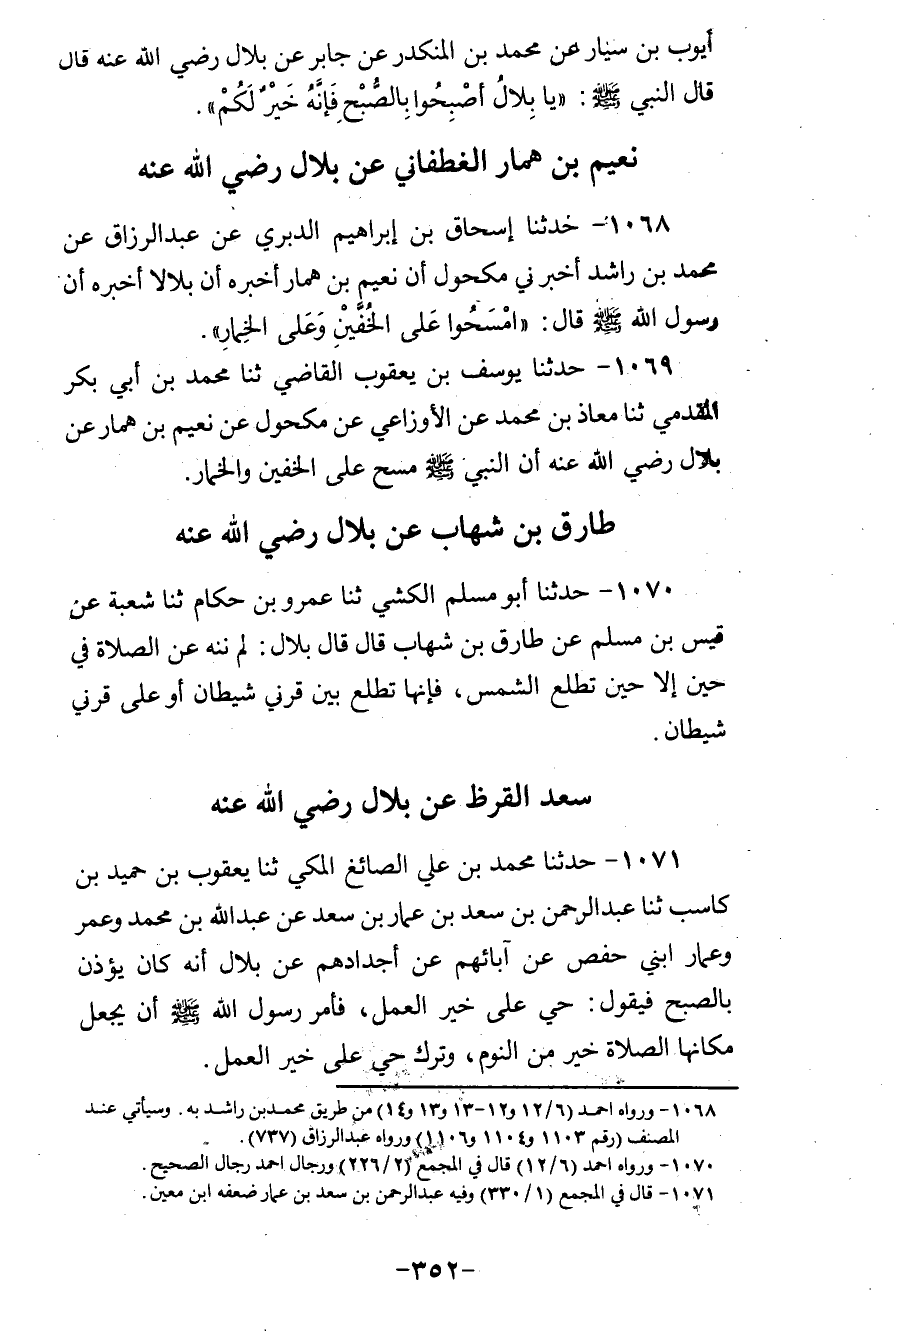 أيوب بن سيار عن محمد بن المنكدر عن جابر عن بلال رضي الله عنه قال
قال النبي ﷺ : «يا بِلالُ أصْبِحُوا بِالصُّبْحِ فَإنَّهُ خَيْرٌ لَكُمْ».
نعيم بن همار الغطفاني عن بلال رضي الله عنه
١٠٦٨- حدثنا إسحاق بن إبراهيم الدبري عن عبدالرزاق عن
محمد بن راشد أخبر ني مكحول أن نعيم بن همار أخبره أن بلالا أخبره أن
رسول الله ﷺ قال: «امْسَحُوا عَلى الخُفَّيْنِ وَعَلى الخِمارِ».
١٠٦٩- حدثنا يوسف بن يعقوب القاضي ثنا محمد بن أبي بكر
المقدمي ثنا معاذ بن محمد عن الأوزاعي عن مكحول عن نعيم بن همار عن
بلال رضي الله عنه أن النبي ﷺ مسح على الخفين والخمار.
طارق بن شهاب عن بلال رضي الله عنه
١٠٧٠- حدثنا أبو مسلم الكشي ثنا عمرو بن حكام ثنا شعبة عن
قيس بن مسلم عن طارق بن شهاب قال قال بلال : لم ننه عن الصلاة في
حين إلا حين تطلع الشمس، فإنها تطلع بين قرني شيطان أو على قرني
شيطان .
سعد القرظ عن بلال رضي الله عنه
١٠٧١- حدثنا محمد بن علي الصائغ المكي ثنا يعقوب بن حميد بن
كاسب ثنا عبدالرحمن بن سعد بن عمار بن سعد عن عبدالله بن محمد وعمر
وعمار ابني حفص عن آبائهم عن أجدادهم عن بلال أنه كان يؤذن
بالصبح فيقول: حي على خير العمل، فأمر رسول الله ﷺ أن يجعل
مكانها الصلاة خير من النوم، وترك حي على خير العمل.
١٠٦٨- ورواه احمد (١٢/٦ و١٢-١٣ و١٣ و١٤) من طريق محمدبن راشد به . وسيأتي عند
المصنف (رقم ١١٠٣ و١١٠٤ و١١٠٦) ورواه عبدالرزاق (٧٣٧).
١٠٧٠- ورواه احمد (١٢/٦) قال في المجمع (٢٢٦/٢) ورجال احمد رجال الصحيح .
١٠٧١- قال في المجمع (٣٣٠/١) وفيه عبدالرحمن بن سعد بن عمار ضعفه ابن معين .
-٣٥٢-